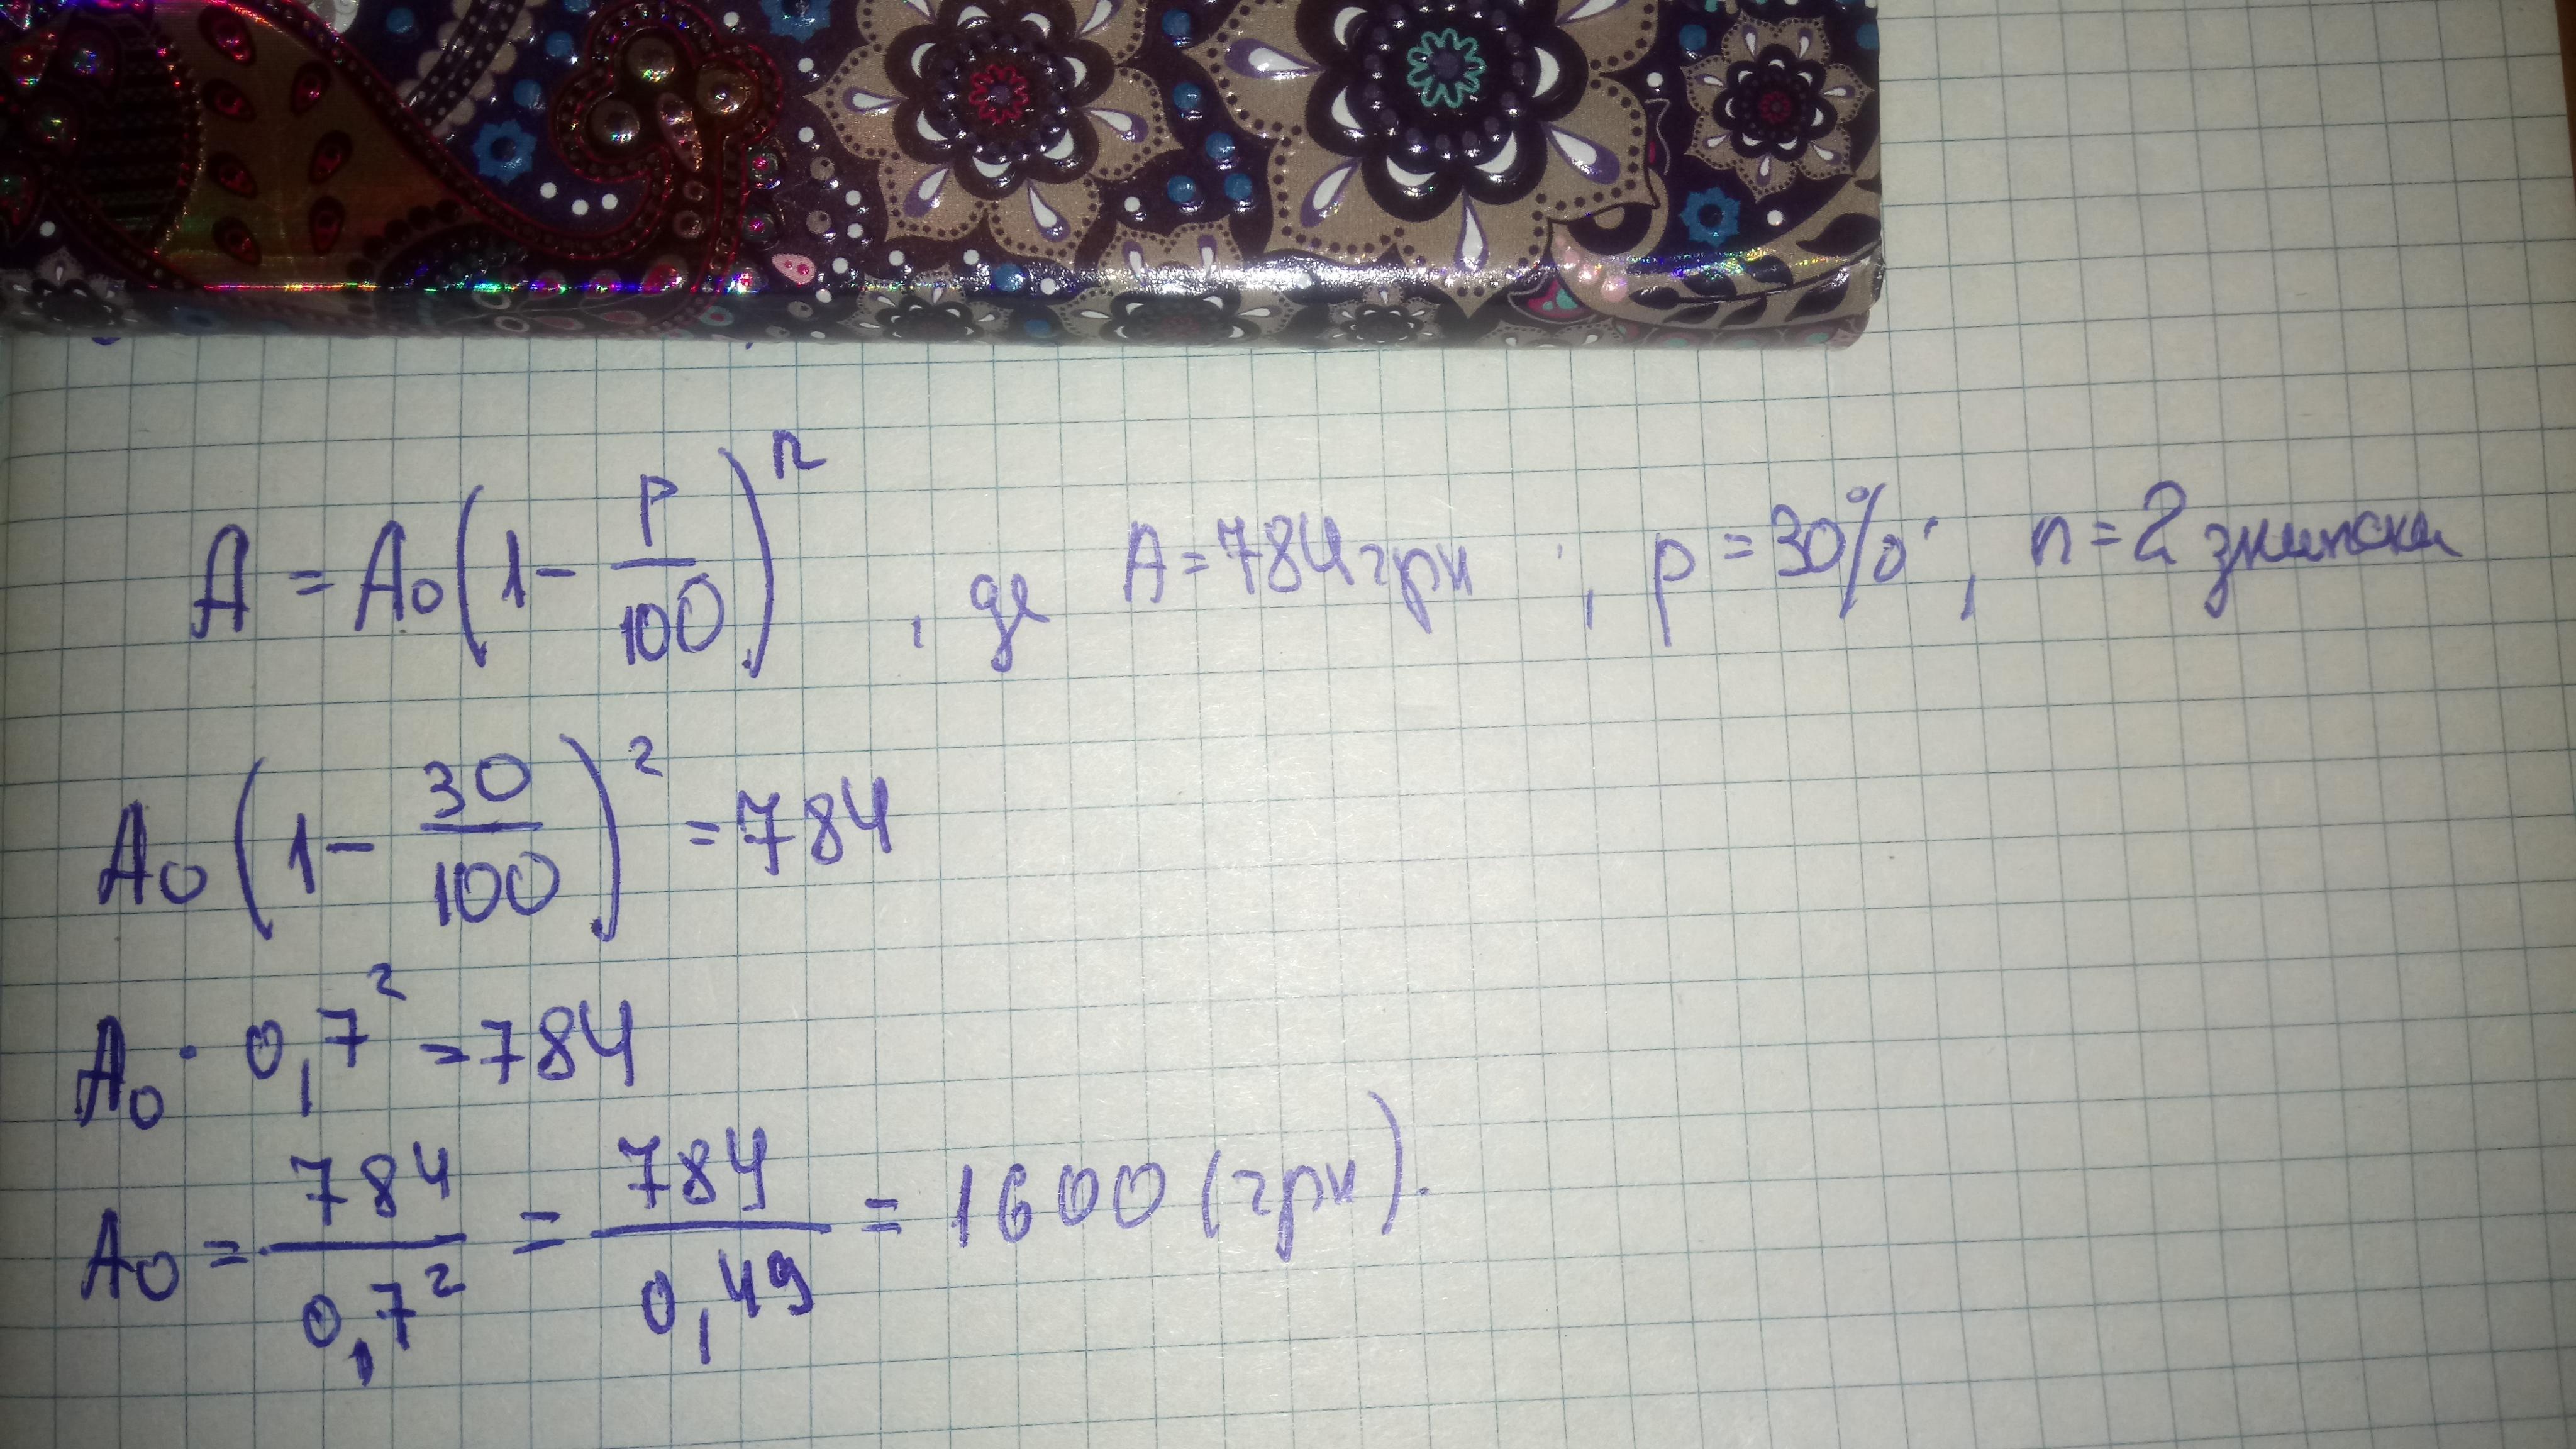 A = A₀(1 - p/100)ⁿ, де A = 784 грн ; p = 30%; n = 2 знижки
A₀(1 - 30/100)² = 784
A₀ · 0,7² = 784
A₀ = 784/0,7² = 784/0,49 = 1600 (грн).